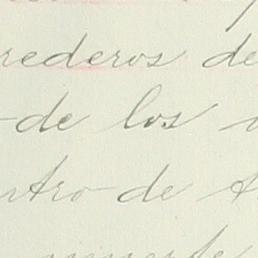 rederos de
-de los
ntro-de